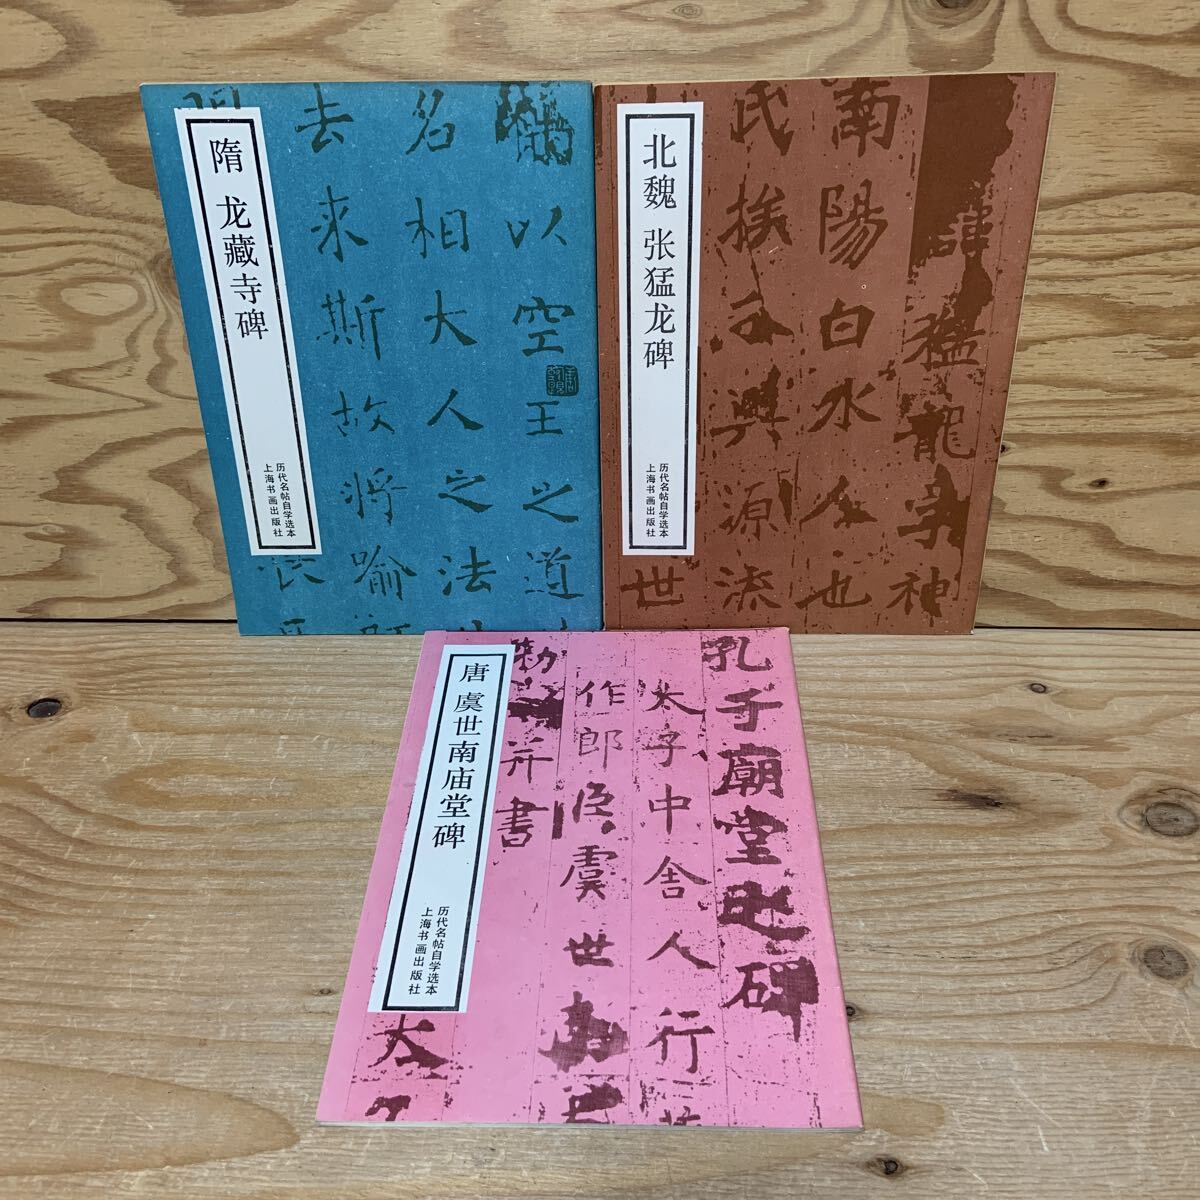 隋 龙藏寺碑
历代名帖自学选本
上海书画出版社
以空王之道
名相大人之法
去来斯故将喻
北魏 张猛龙碑
历代名帖自学选本
上海书画出版社
猛龍字神
南陽白水人也
氏族
興源流
世
唐 虞世南庙堂碑
历代名帖自学选本
上海书画出版社
孔子廟堂之碑
太子中舍人行
作郎臣虞世南
勅
并書
大